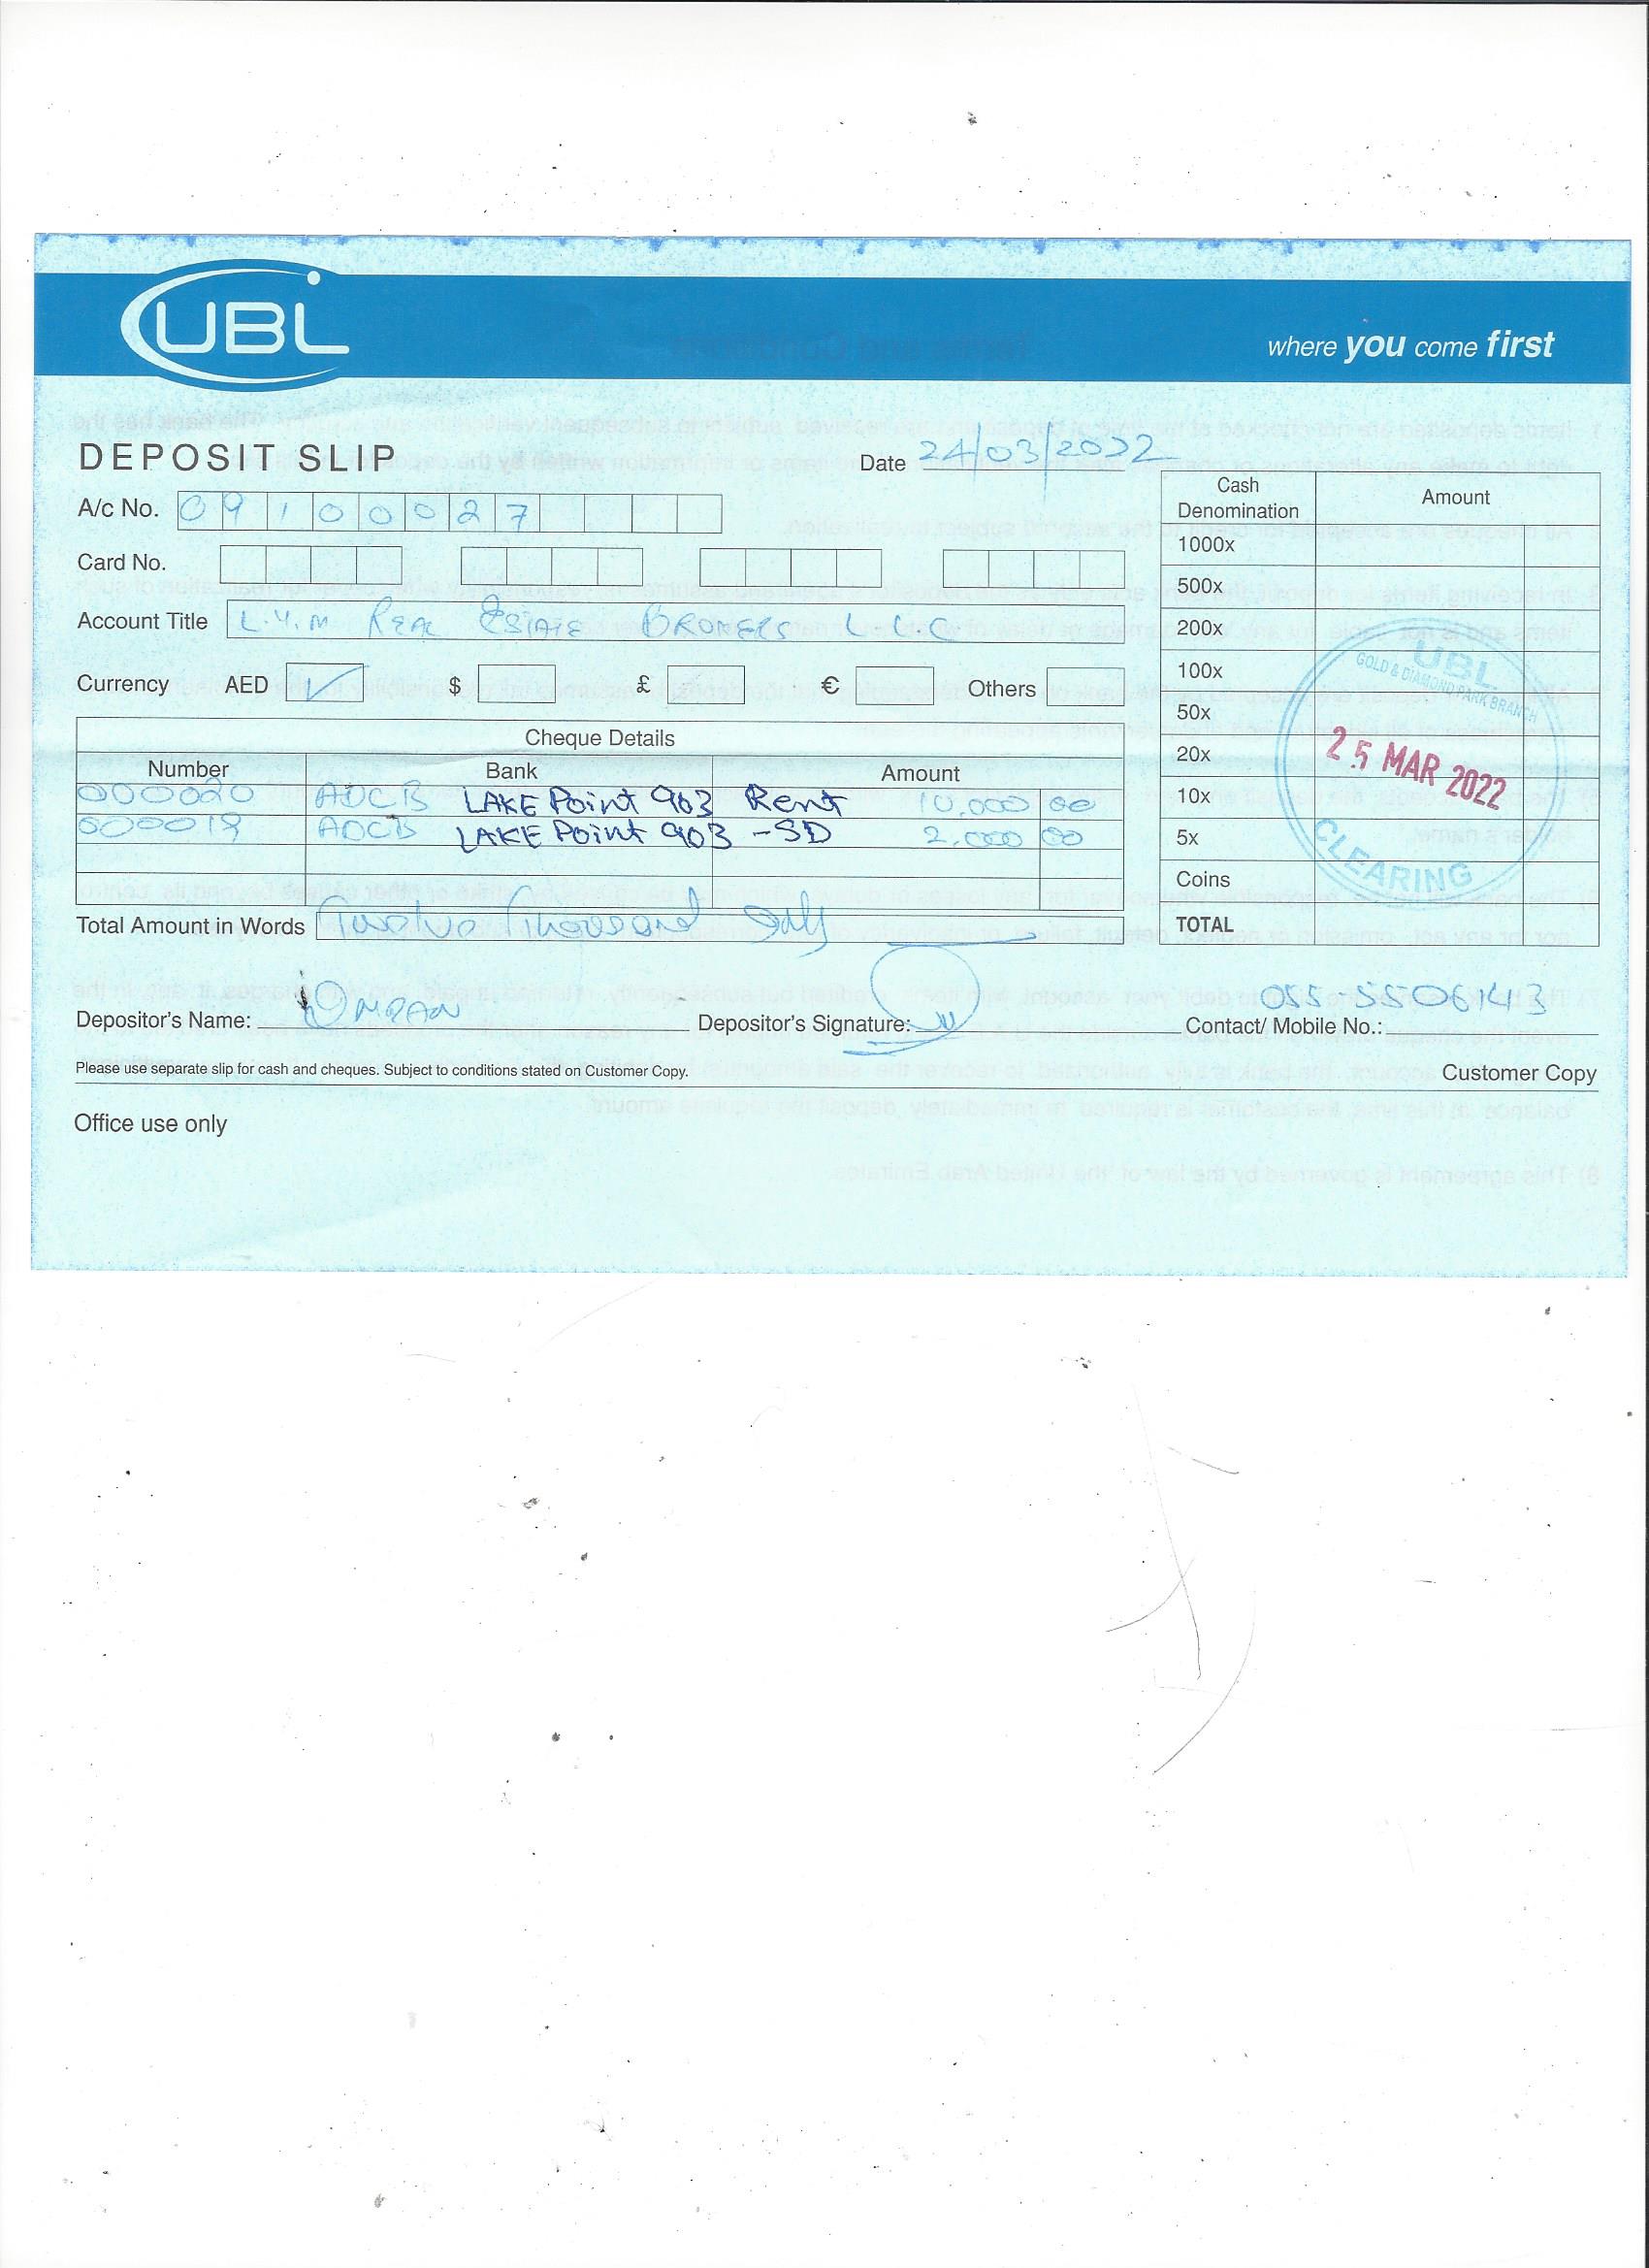 UBL
where you come first
DEPOSIT SLIP
Date 24/03/2022
A/c No. 09100027
Card No.
Account Title L.Y.M REAL ESTATE BROKERS L.L.C
Currency AED $ £ € Others
Cheque Details
Number Bank Amount
000020 ADCB LAKE Point 903 Rent 10,000 00
000019 ADCB LAKE Point 903 - SD 2,000 00
Total Amount in Words Twelve Thousand Only
Cash Denomination Amount
1000x
500x
200x
100x
50x
20x
10x
5x
Coins
TOTAL
UBL
GOLD & DIAMOND PARK BRANCH
25 MAR 2022
CLEARING
Depositor's Name: OMRAN Depositor's Signature: Contact/ Mobile No.: 055-5506143
Please use separate slip for cash and cheques. Subject to conditions stated on Customer Copy. Customer Copy
Office use only
8) This agreement is governed by the law of the United Arab Emirates.